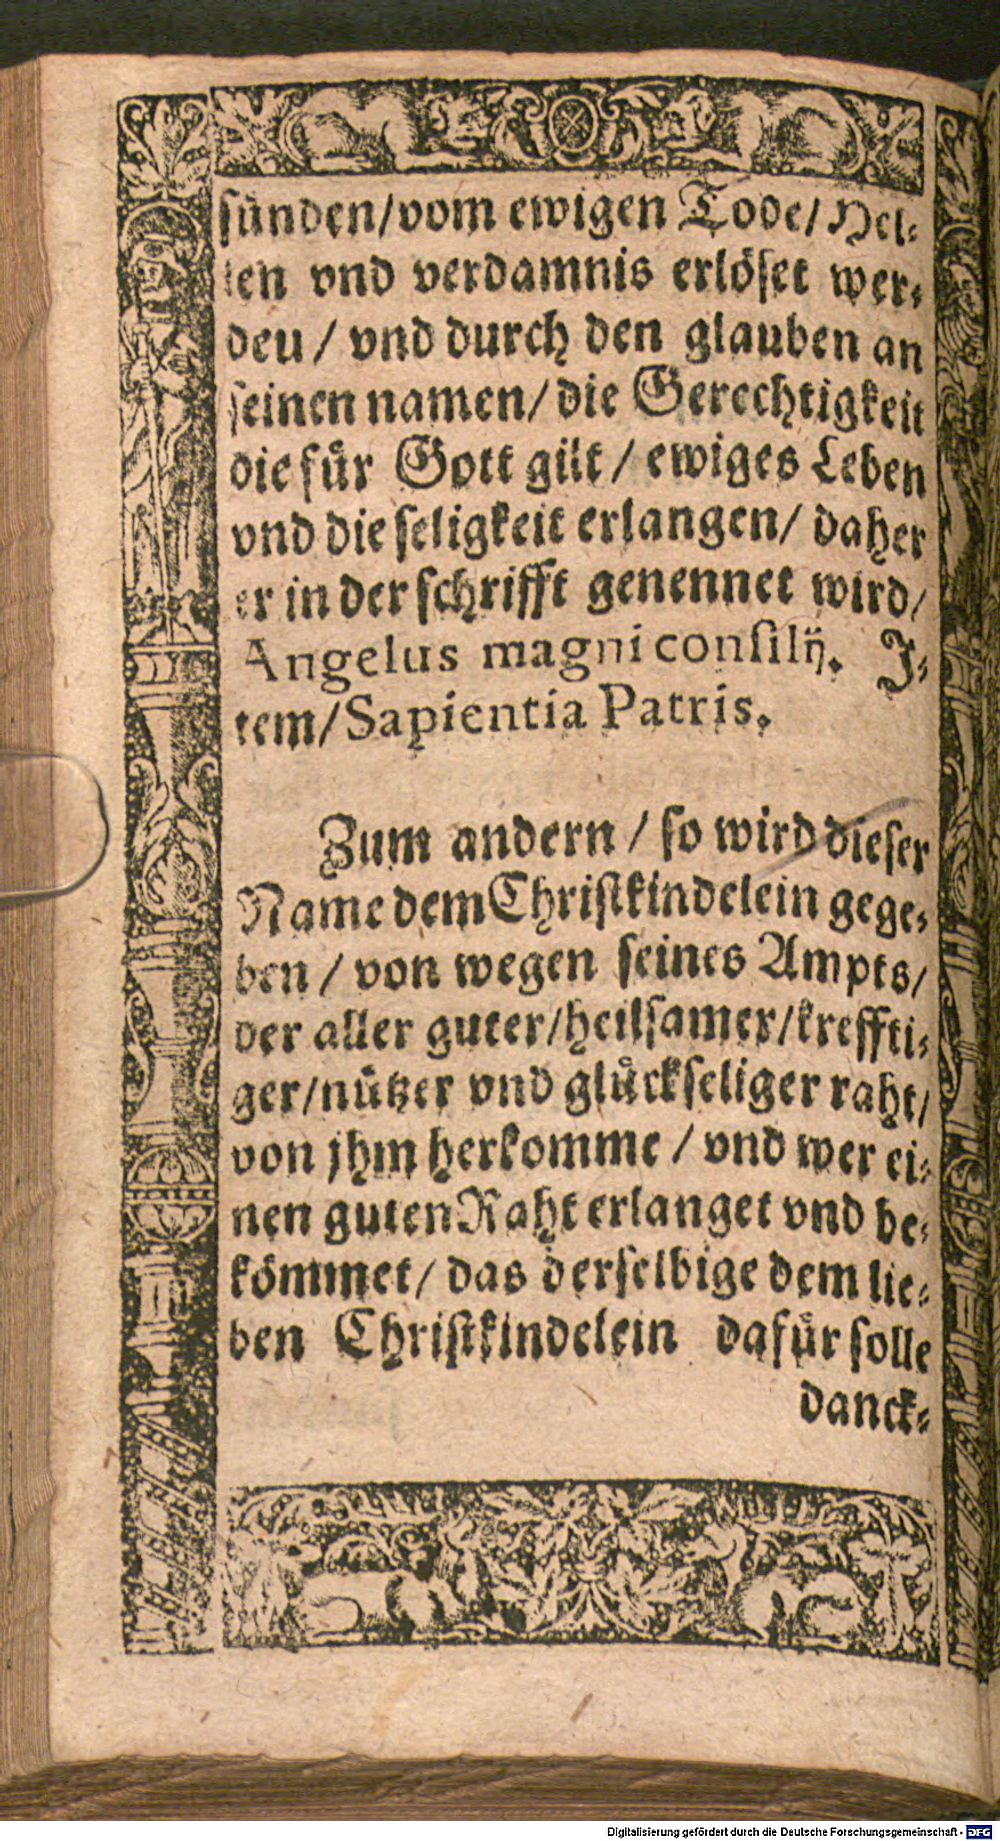 sünden/vom ewigen Tode/ Hel-
len vnd verdamnis erlöset wer-
deu / vnd durch den glauben an
seinen namen/ die Gerechtigkeit
die für Gott gilt / ewiges Leben
vnd die seligkeit erlangen/ daher
er in der schrifft genennet wird/
Angelus magni consilij. J-
tem/Sapientia Patris.
Zum andern / so wird dieser
Name dem Christkindelein gege-
ben / von wegen seines Ampts/
der aller guter/heilsamer/kreffti-
ger/nützer vnd glückseliger raht/
von jhm herkomme / vnd wer ei-
nen guten Raht erlanget vnd be-
kömmet/ das derselbige dem lie-
ben Christkindelein dafür solle
danck-
Digitalisierung gefördert durch die Deutsche Forschungsgemeinschaft - DFG